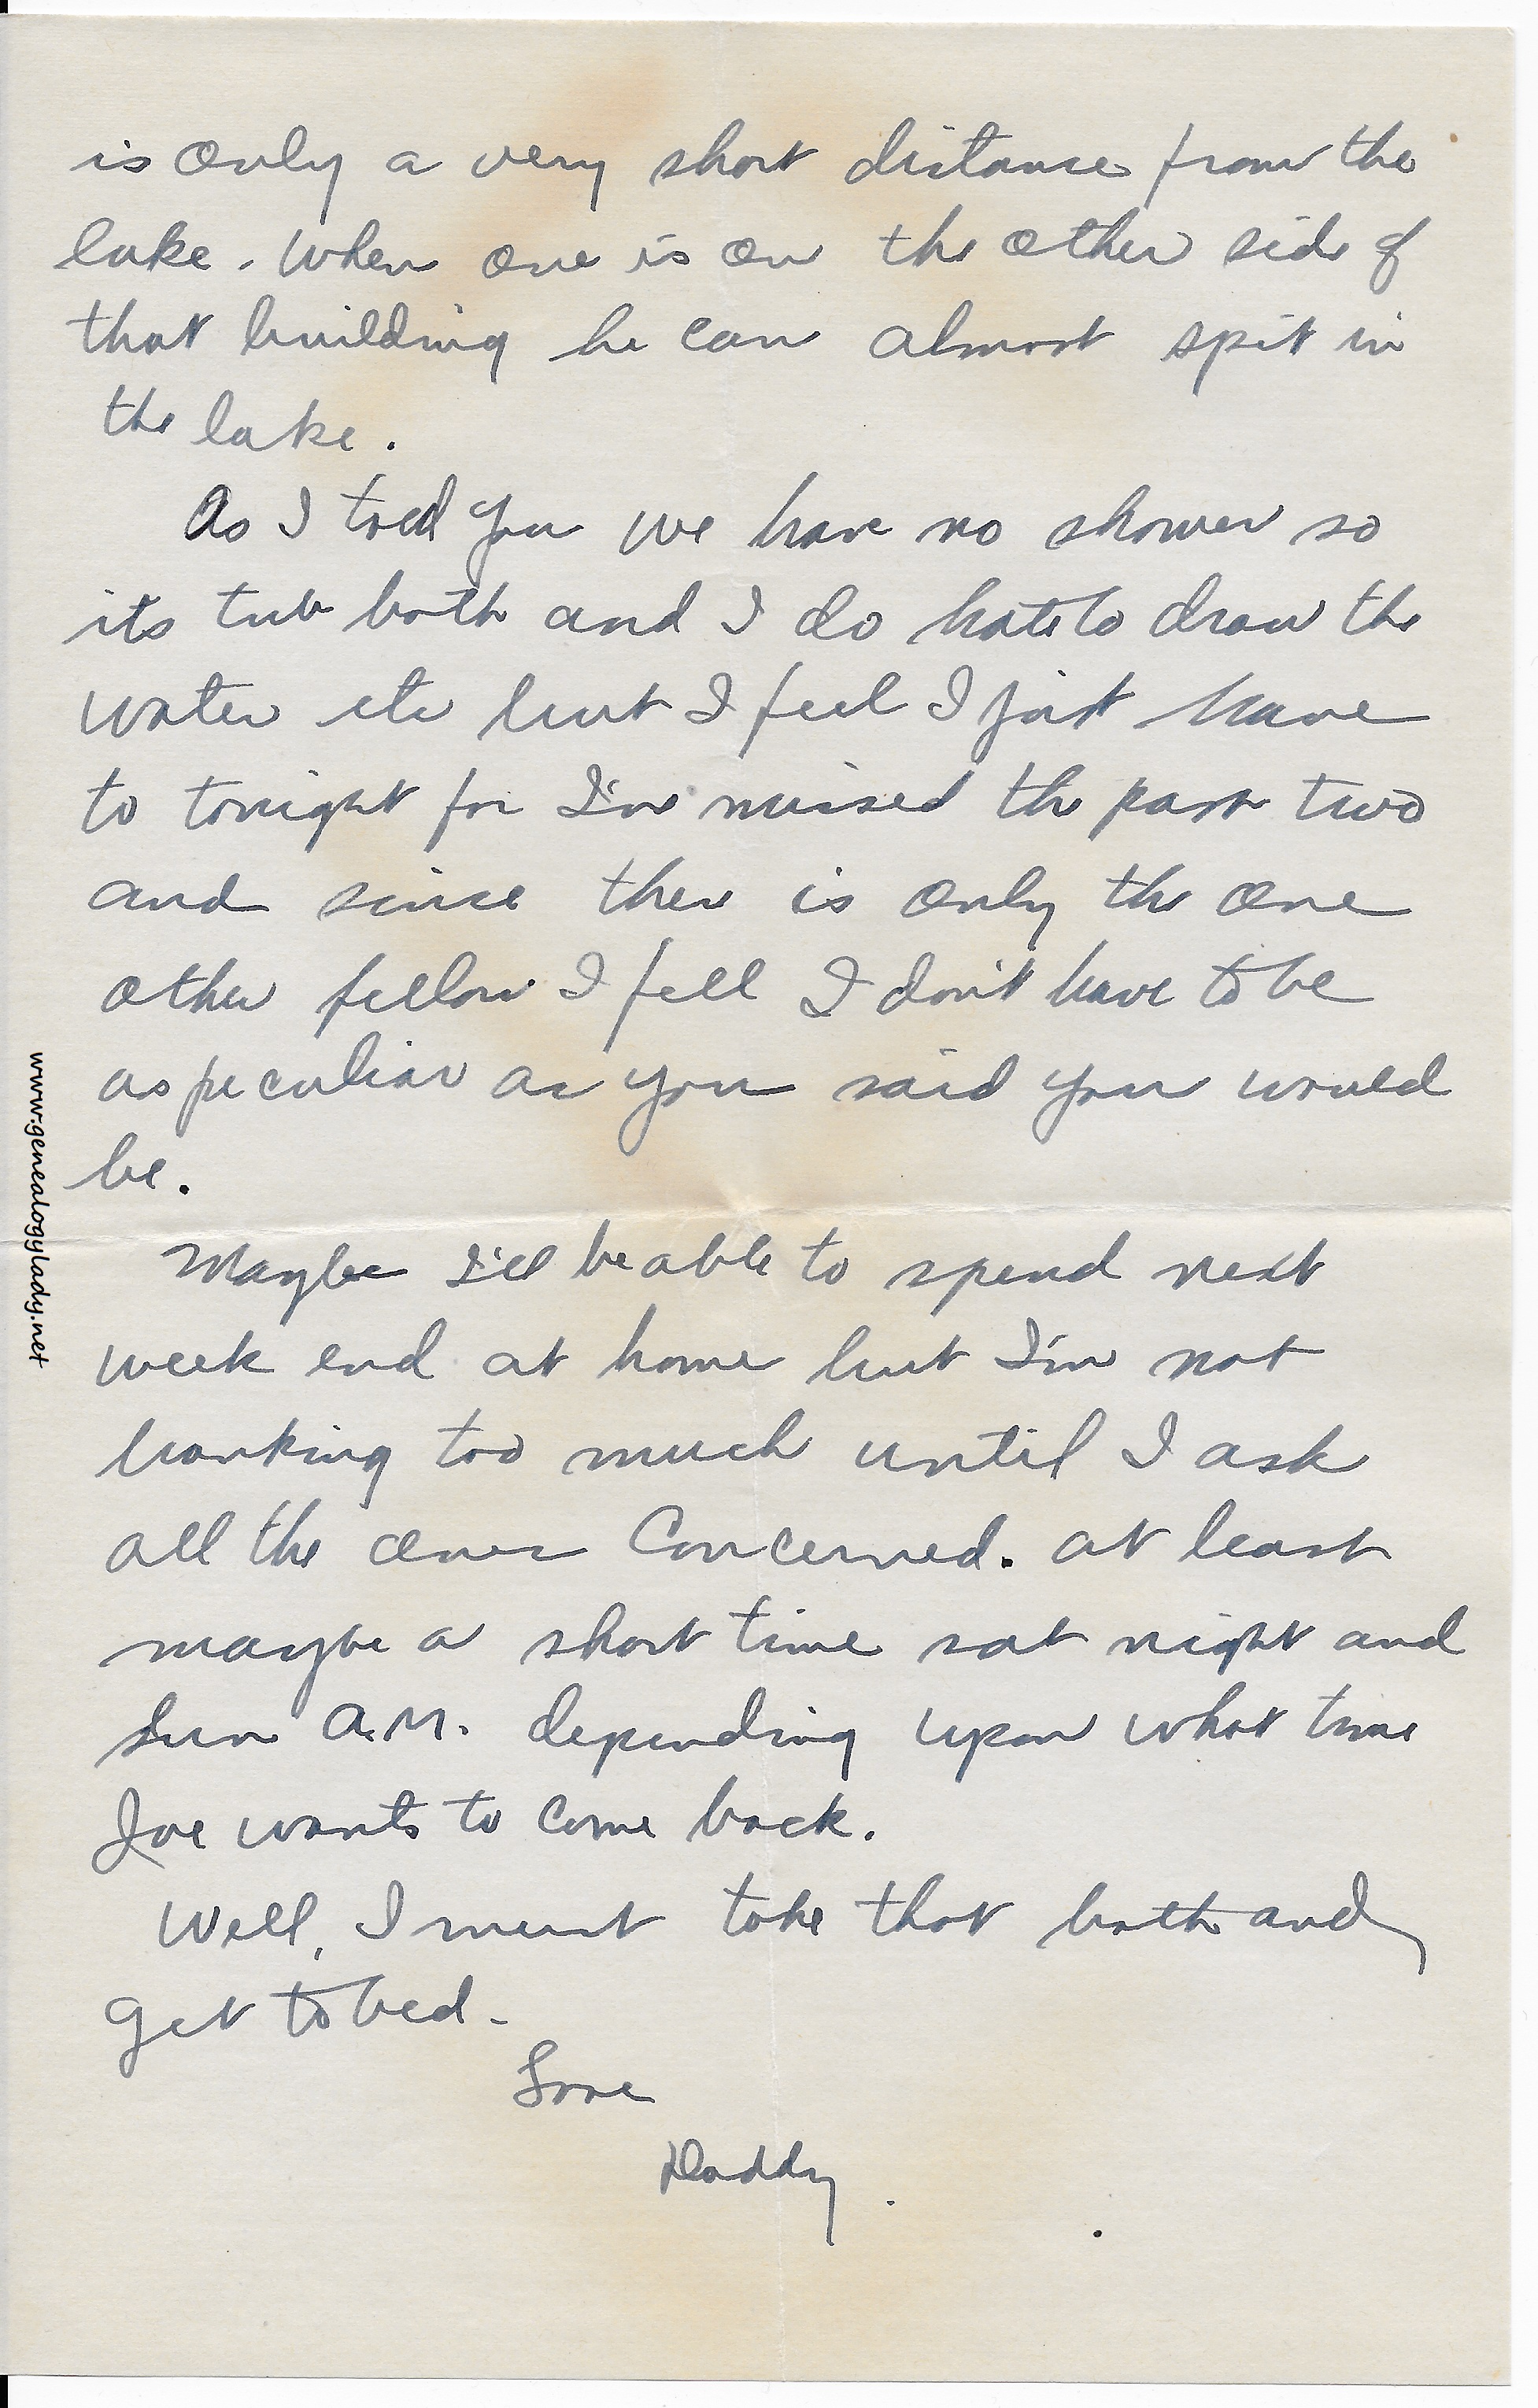 is only a very short distance from the
lake. When one is on the other side of
that building he can almost spit in
the lake.
As I told you we have no shower so
its tub bath and I do hate to draw the
water etc but I feel I just have
to tonight for I've missed the past two
and since there is only the one
other fellow I fell I don't have to be
as peculiar as you said you would
be.
Maybe I'll be able to spend next
week end at home but I'm not
banking too much until I ask
all the ones concerned. At least
maybe a short time sat night and
Sun A.M. depending upon what time
Joe wants to come back.
Well, I must take that bath and
get to bed.
Love
Daddy.
www.genealogylady.net